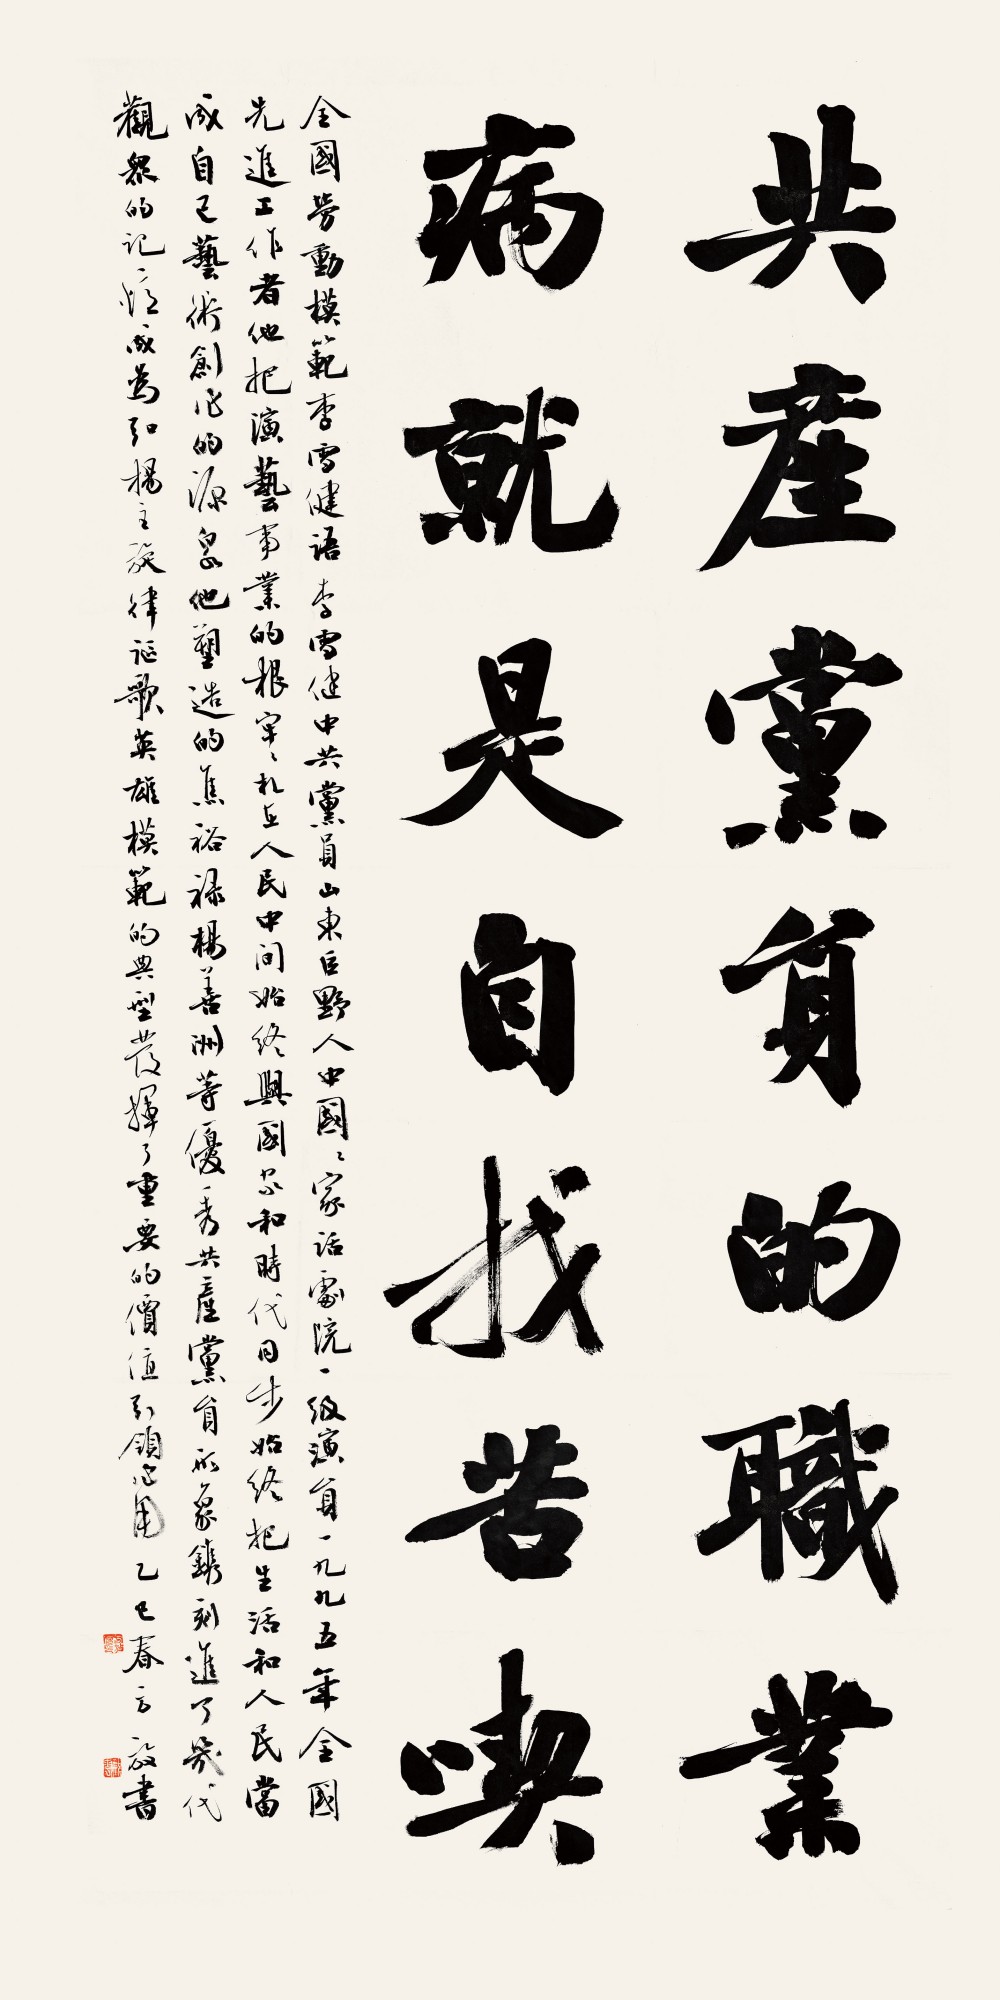 共產黨員的職業
病就是自找苦喫
全國勞動模範李雪健語李雪健中共黨員山東巨野人中國〻家話劇院一級演員一九九五年全國
先進工作者他把演藝事業的根牢〻扎在人民中间始終與國家和時代同步始終把生活和人民當
成自己藝術創作的源泉他塑造的焦裕禄楊善洲等優秀共產黨員形象鐫刻進了幾代
觀眾的记憶成為弘楊主旋律謳歌英雄模範的典型發揮了重要的價值引領作用乙巳春方放書